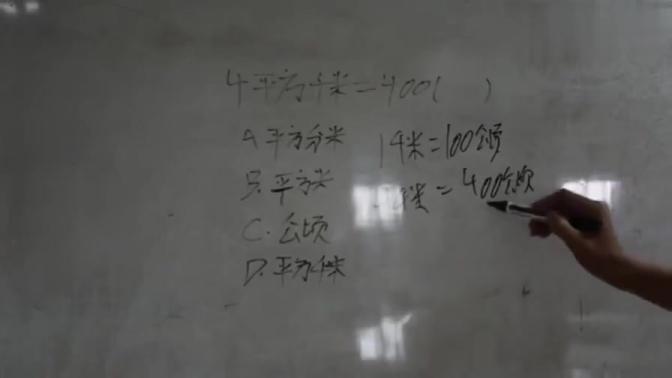 4平方千米=400( )
A.平方分米
B.平方米
C.公顷
D.平方千米
1千米=100公顷
千米=400公顷